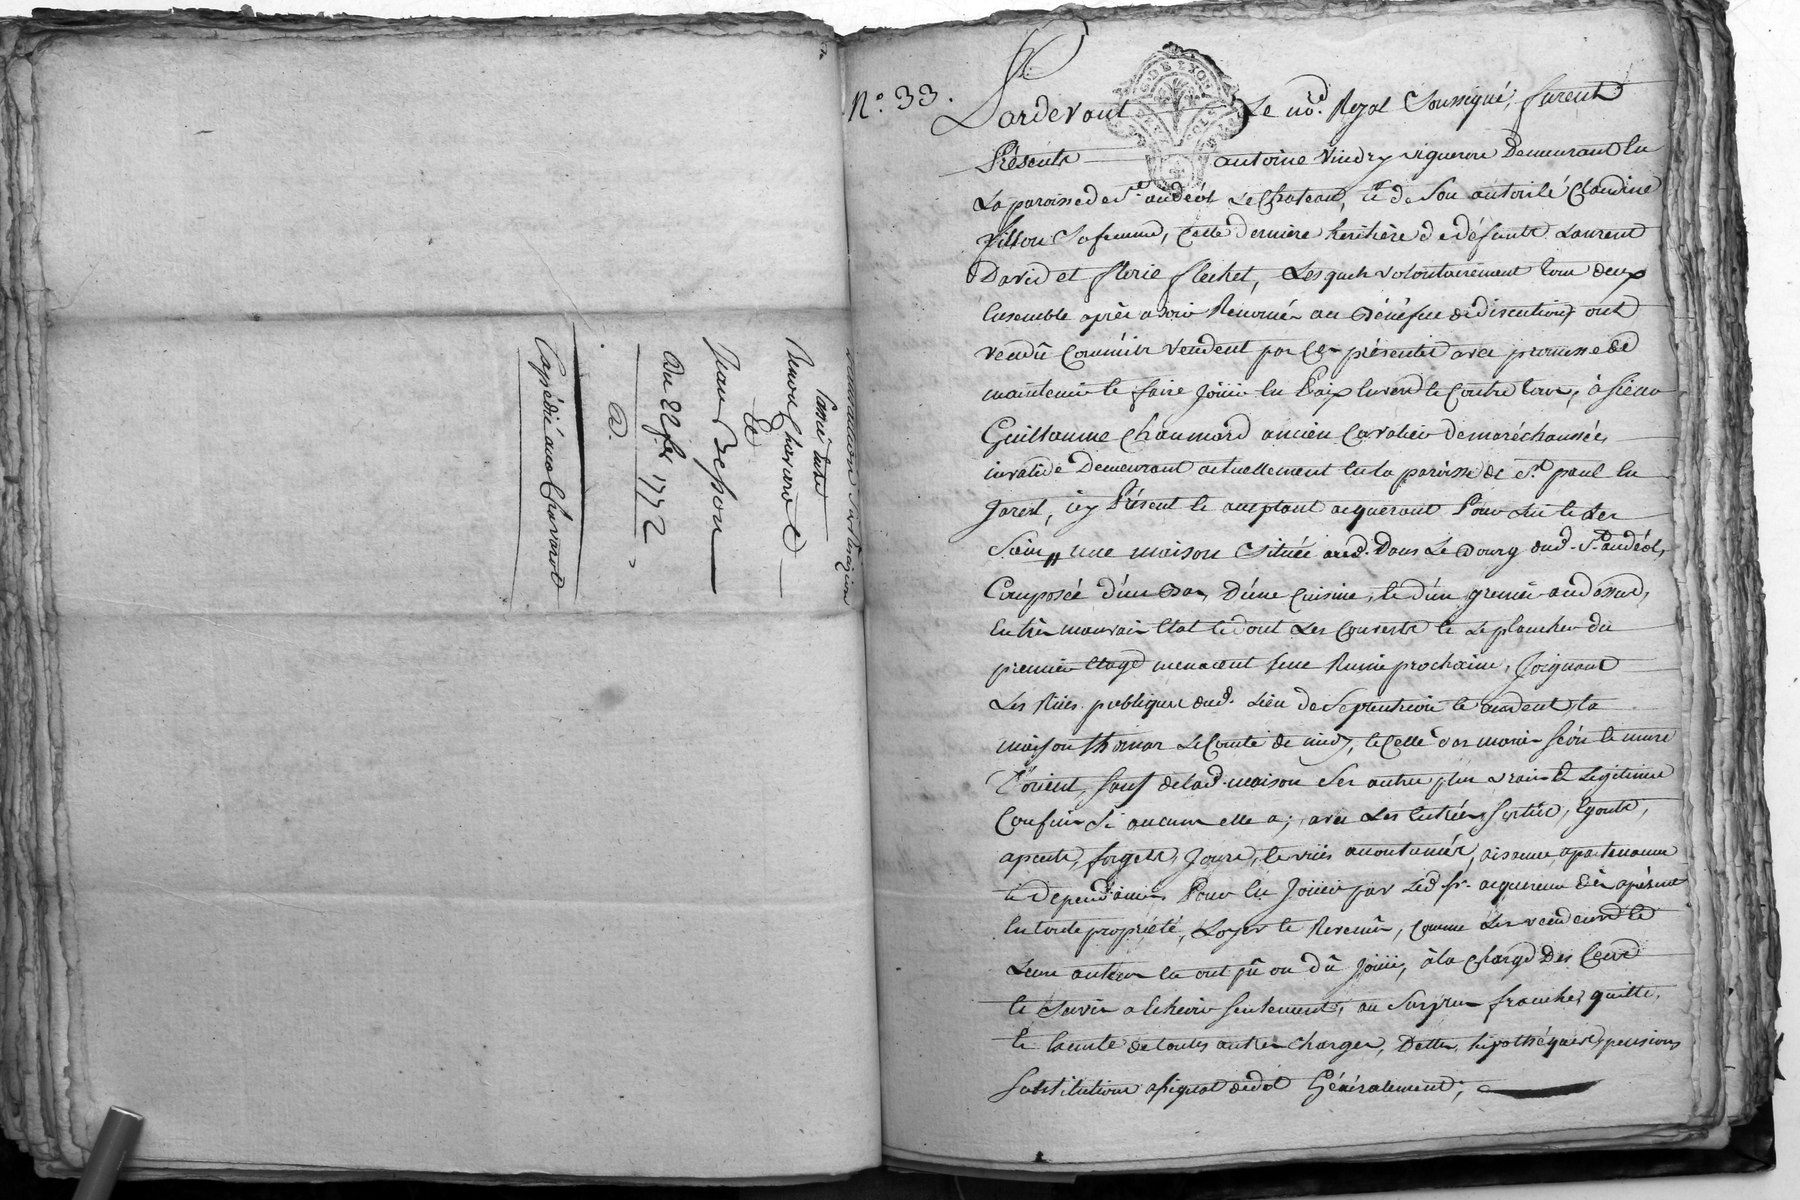 Passé entre
Benoit Chavarot
Et
Jean Besson
Du 22 fev. 1772
Expédié aud. Chavarot
N.° 33.
G. DE LYON
SOLS
Pardevant Le no.re Royal Soussigné, furent
Présents antoine Vindry vigneron Demeurant En
La paroisse de St. andéol Le Chateau, et de Son autorité Claudine
Villon Sa femme, Cette derniere heritière de défunts Laurent
David et florie flechet, Lesquels volontairement tous deux
Ensemble après avoir Renoncé au Bénéfice de discution ont
vendû Comme ils Vendent par Ces présentes avec promesse de
maintenir et faire Jouir En Paix Envers et Contre tous, à Sieur
Guillaume Chaumard ancien Cavalier de maréchaussée
invalide Demeurant actuellement En la paroisse de St. paul En
Jarest, icy Présent et acceptant acquérant Pour Lui et Les
Siens, une maison Située aud. Dans Le Bourg dud. St. andéol,
Composée d'un Bas, d'une Cuisine, et d'un grenier audessus,
En très mauvais Etat et dont Les Couverts et Le plancher du
premier Etage menacent une Ruine prochaine, Joignant
Les Rües publiques dud. Lieu de Septentrion et occident, la
maison thomas Le Comte de midy, et Celle
d'orient, sauf de lad. maison Ses autres plus vrais et Legitimes
Confins Si aucuns elle a; avec Ses Entrées, Sorties, Egouts,
apents, forgets, Jours, et vües accoutumés, aisance apartenances
et dependances Pour En Jouir par Led. Sr. acquereur dès apresent
En toute propriété, Loyers et Revenûs, Comme Les vendeurs et
Leurs auteurs En ont pû ou dû Jouir, à la Charge Des Cens
et Servis a Echeoir Seulement, au Surplus franche, quitte,
et Exempte de toutes autres Charges, Dettes, hipothéques, pensions
Substitutions assignat de dot Généralement;